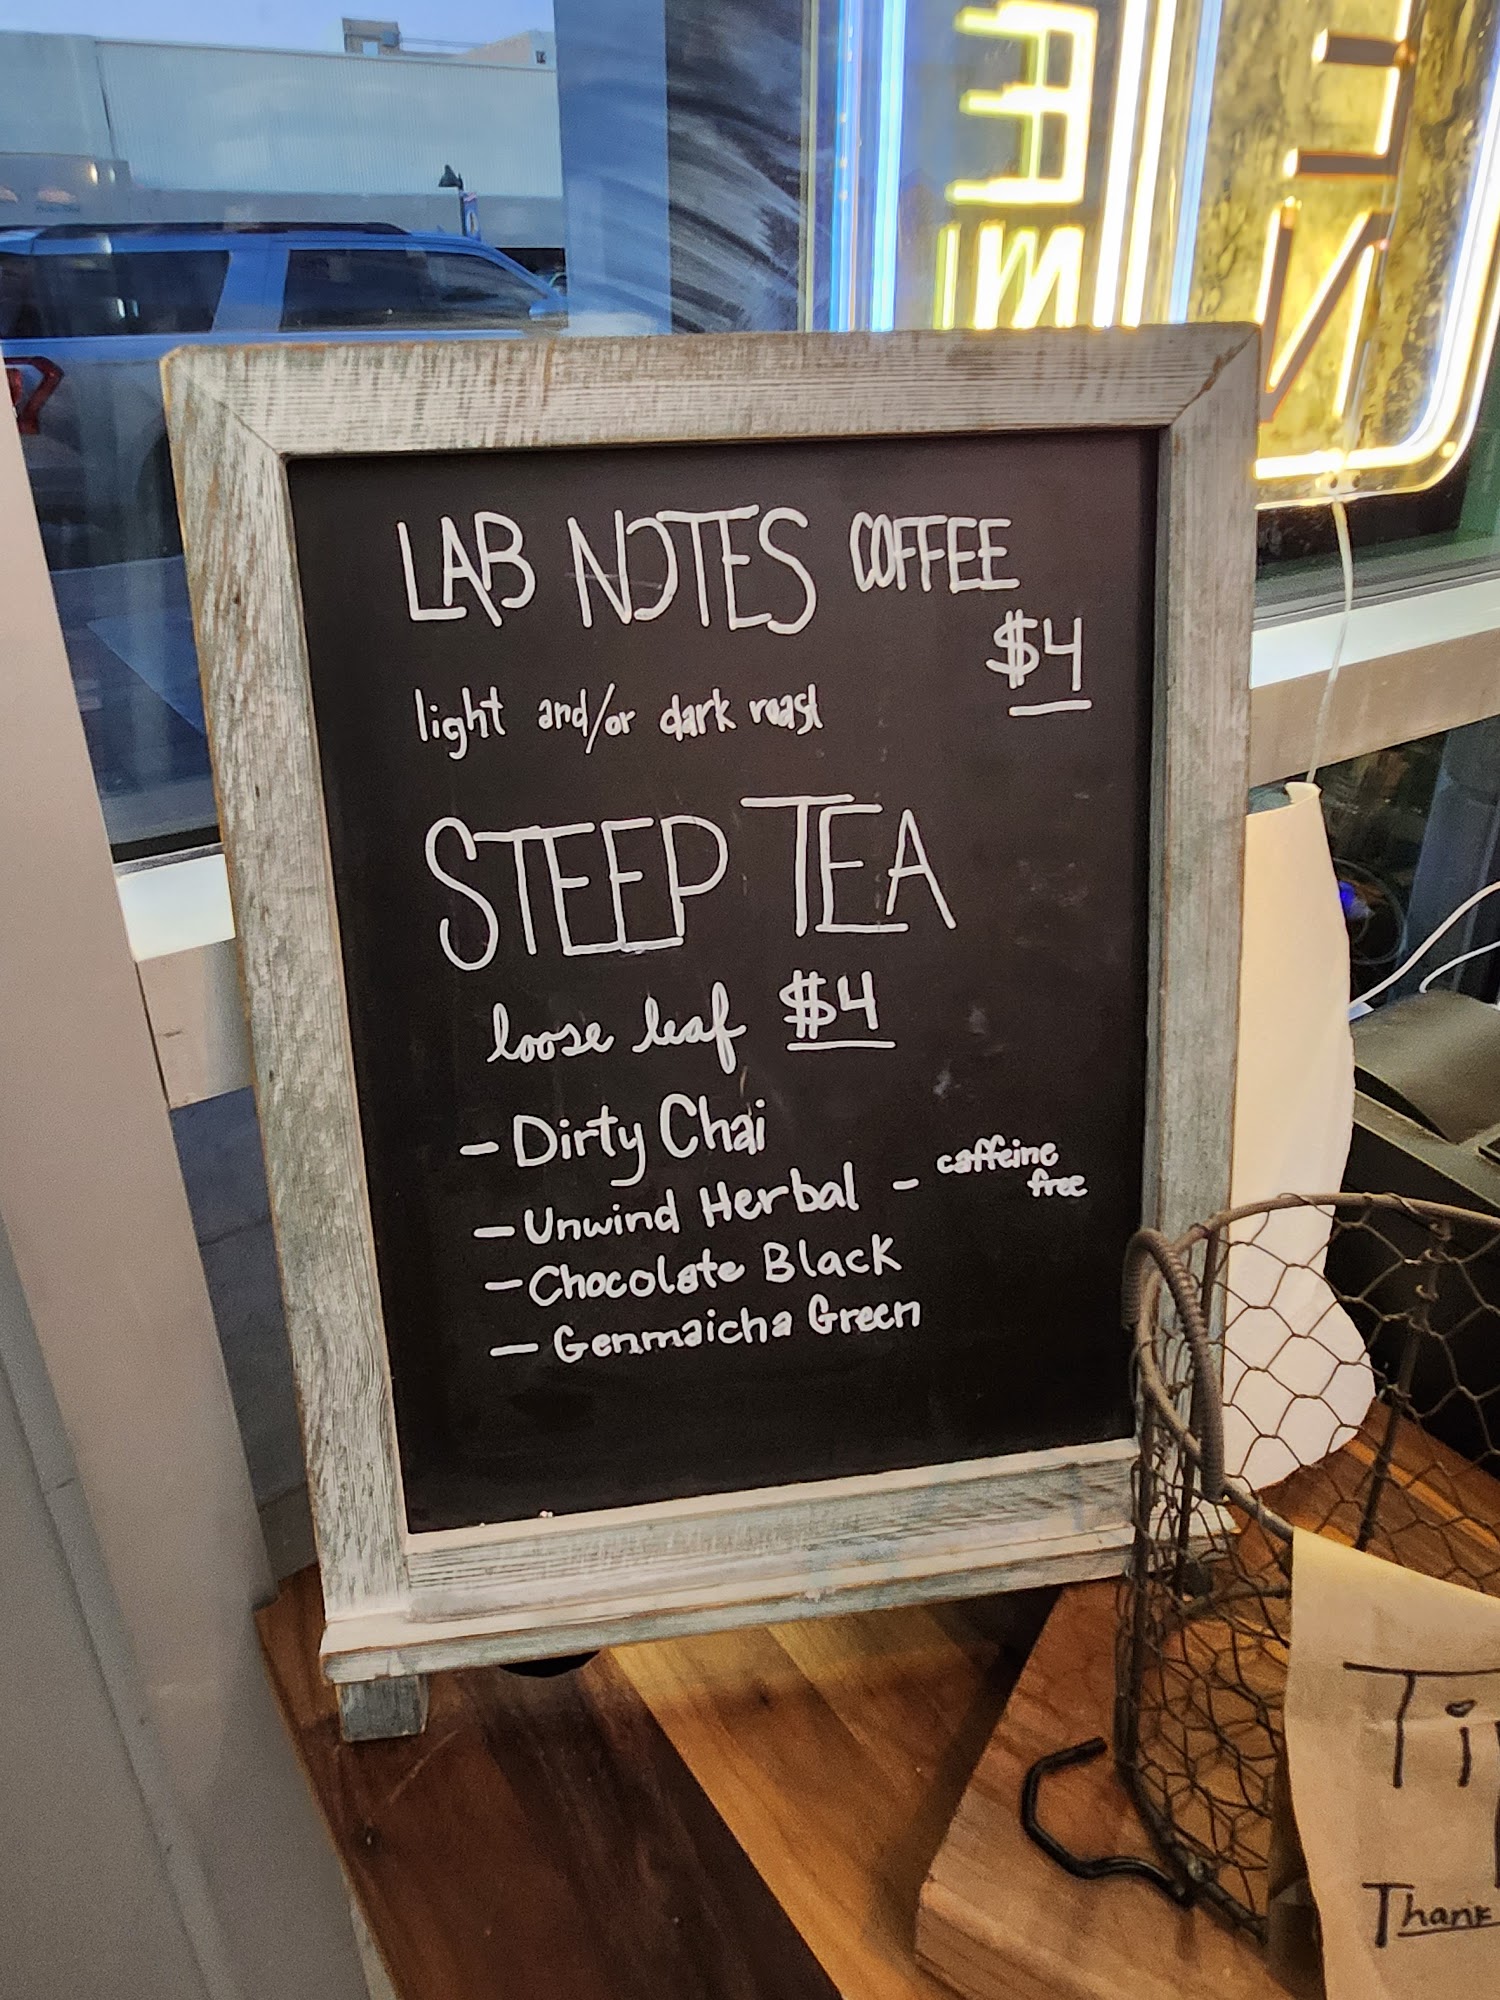 LAB NOTES COFFEE
$4
light and/or dark roast
STEEP TEA
loose leaf $4
- Dirty Chai
- Unwind Herbal - caffeine free
- Chocolate Black
- Genmaicha Green
Thank